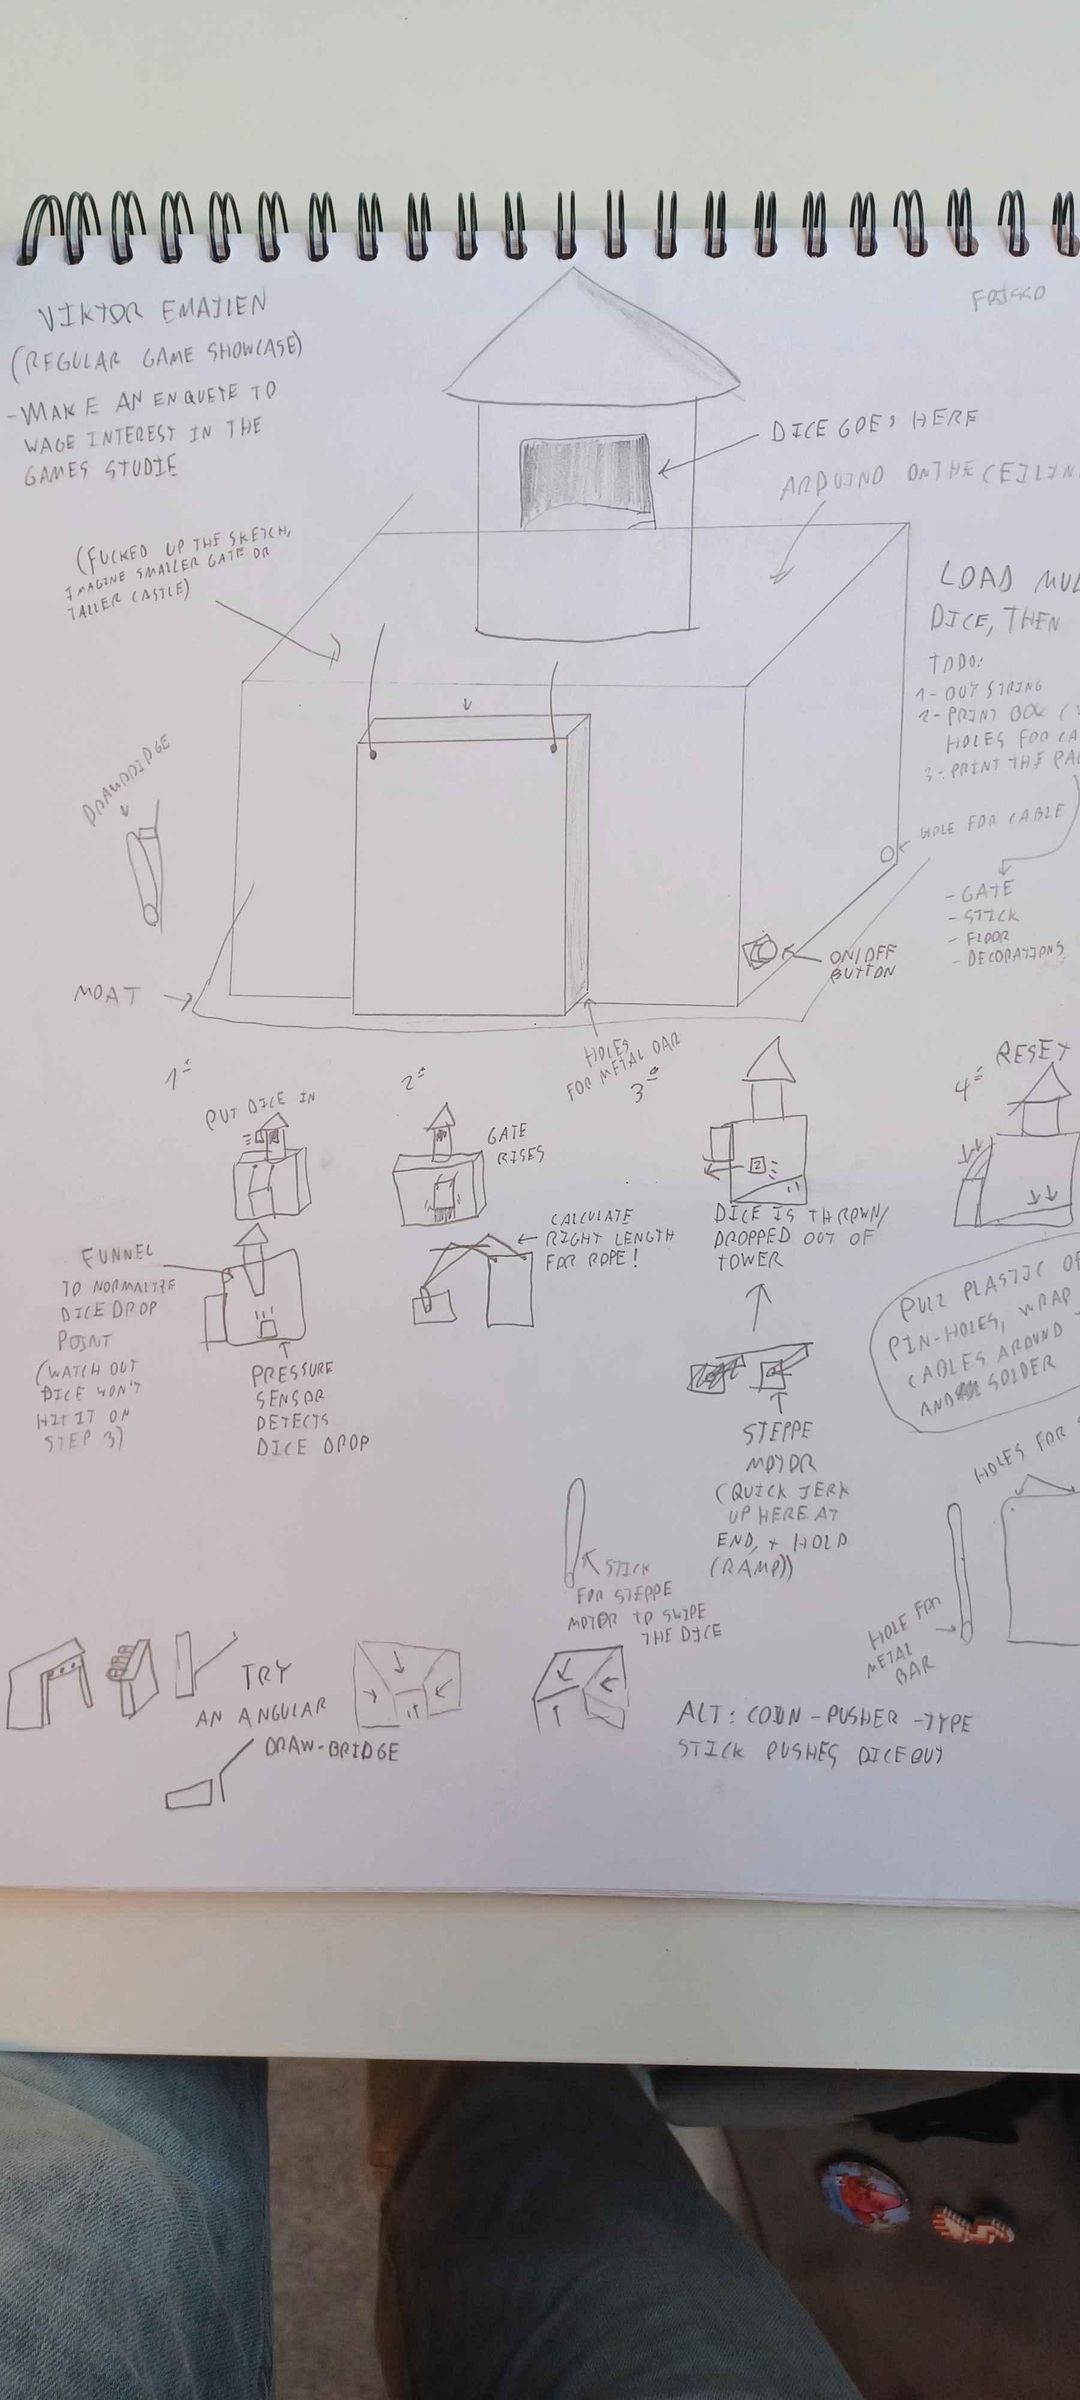 VIKTOR EMAILEN
(REGULAR GAME SHOWCASE)
- MAKE AN ENQUETE TO
WAGE INTEREST IN THE
GAMES STUDIE
DICE GOES HERE
ARDUINO ON THE CEILIN
(FUCKED UP THE SKETCH,
IMAGINE SMALLER GATE OR
TALLER CASTLE)
LOAD
DICE, THEN
TODO:
1- OUT STRING
2- PRINT BOX (
HOLES FOR CA
3- PRINT THE PA
DRAWBRIDGE
HOLE FOR CABLE
- GATE
- STICK
- FLOOR
- DECORATIONS
ON/OFF
BUTTON
MOAT
HOLES
FOR METAL BAR
1-
PUT DICE IN
2-
GATE
RISES
3-
DICE IS THROWN/
DROPPED OUT OF
TOWER
4-
RESET
FUNNEL
TO NORMALIZE
DICE DROP
POINT
(WATCH OUT
DICE WON'T
HIT IT ON
STEP 3)
PRESSURE
SENSOR
DETECTS
DICE DROP
CALCULATE
RIGHT LENGTH
FOR ROPE!
STEPPE
MOTOR
(QUICK JERK
UP HERE AT
END, + HOLD
(RAMP))
PULL PLASTIC OF
PIN-HOLES, WRAP
CABLES AROUND
AND SOLDER
STICK
FOR STEPPE
MOTOR TO SWIPE
THE DICE
HOLES FOR
HOLE FOR
METAL
BAR
TRY
AN ANGULAR
DRAW-BRIDGE
ALT: COIN-PUSHER-TYPE
STICK PUSHES DICE OUT